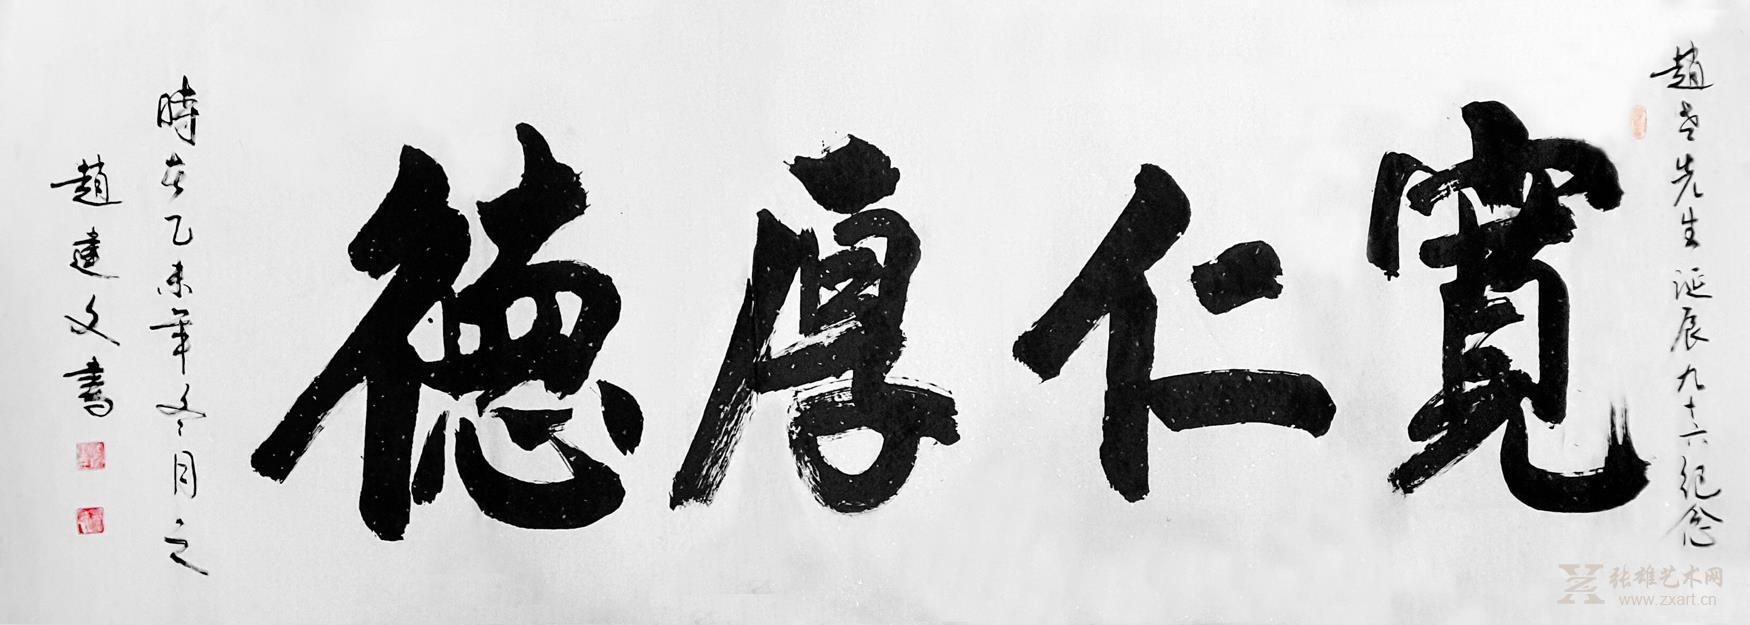 趙老先生诞辰九十六纪念
寬仁厚德
時在乙未年冬月之
趙建文書
张雄艺术网
www.zxart.cn